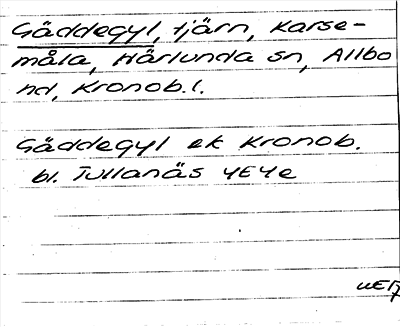 Gäddegyl, tjärn, Karse-
måla, Härlunda sn, Allbo
hd, Kronob. l.
Gäddegyl ek Kronob.
bl. Tullanäs 4E4e